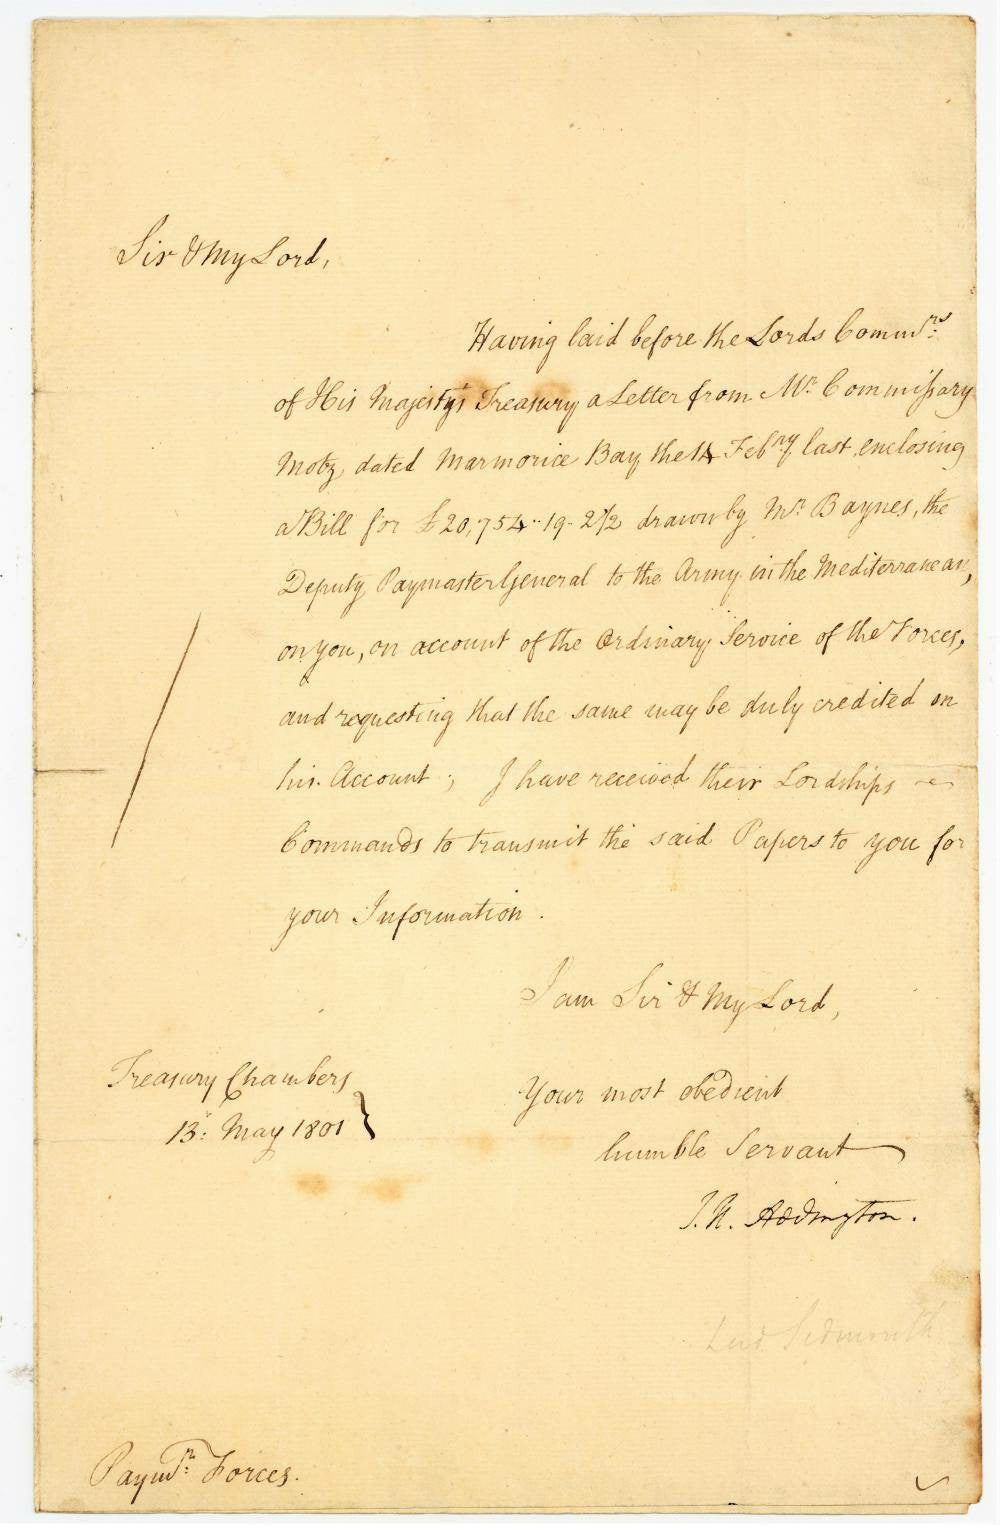 Sir & My Lord,
Having laid before the Lords Comm.rs
of His Majesty's Treasury a Letter from Mr. Commissary
Motz, dated Marmorice Bay the 14 Feb.ry last, enclosing
a Bill for £20,754..19-2½ drawn by Mr. Baynes, the
Deputy Paymaster General to the Army in the Mediterranean,
on you, on account of the Ordinary Service of the Forces,
and requesting that the same may be duly credited on
his Account; I have received their Lordships
Commands to transmit the said Papers to you for
your Information.
I am Sir & My Lord,
Your most obedient
humble Servant
J.H. Addington.
Treasury Chambers
13: May 1801
Lord Sidmouth
Paym.r Forces.